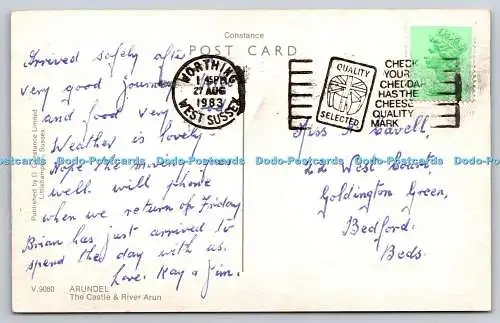 Constance
POST CARD
Arrived safely after
very good journey
and food very
Weather is lovely
Hope the move goes
well will phone
when we return of Friday
Brian has just arrived to
spend the day with us.
Love. Kay & Jim.
WORTHING
27 AUG
1983
WEST SUSSEX
QUALITY
SELECTED
CHECK
YOUR
CHEDDAR
HAS THE
CHEESE
QUALITY
MARK
Miss A Cavell,
West Court,
Goldington Green,
Bedford.
Beds.
Published by D. Constance Limited
Littlehampton, Sussex.
V.9080 ARUNDEL
The Castle & River Arun
Postcards Data-Postcards Data-Postcards Data-Postcards Data-Postcards Data-Postcards